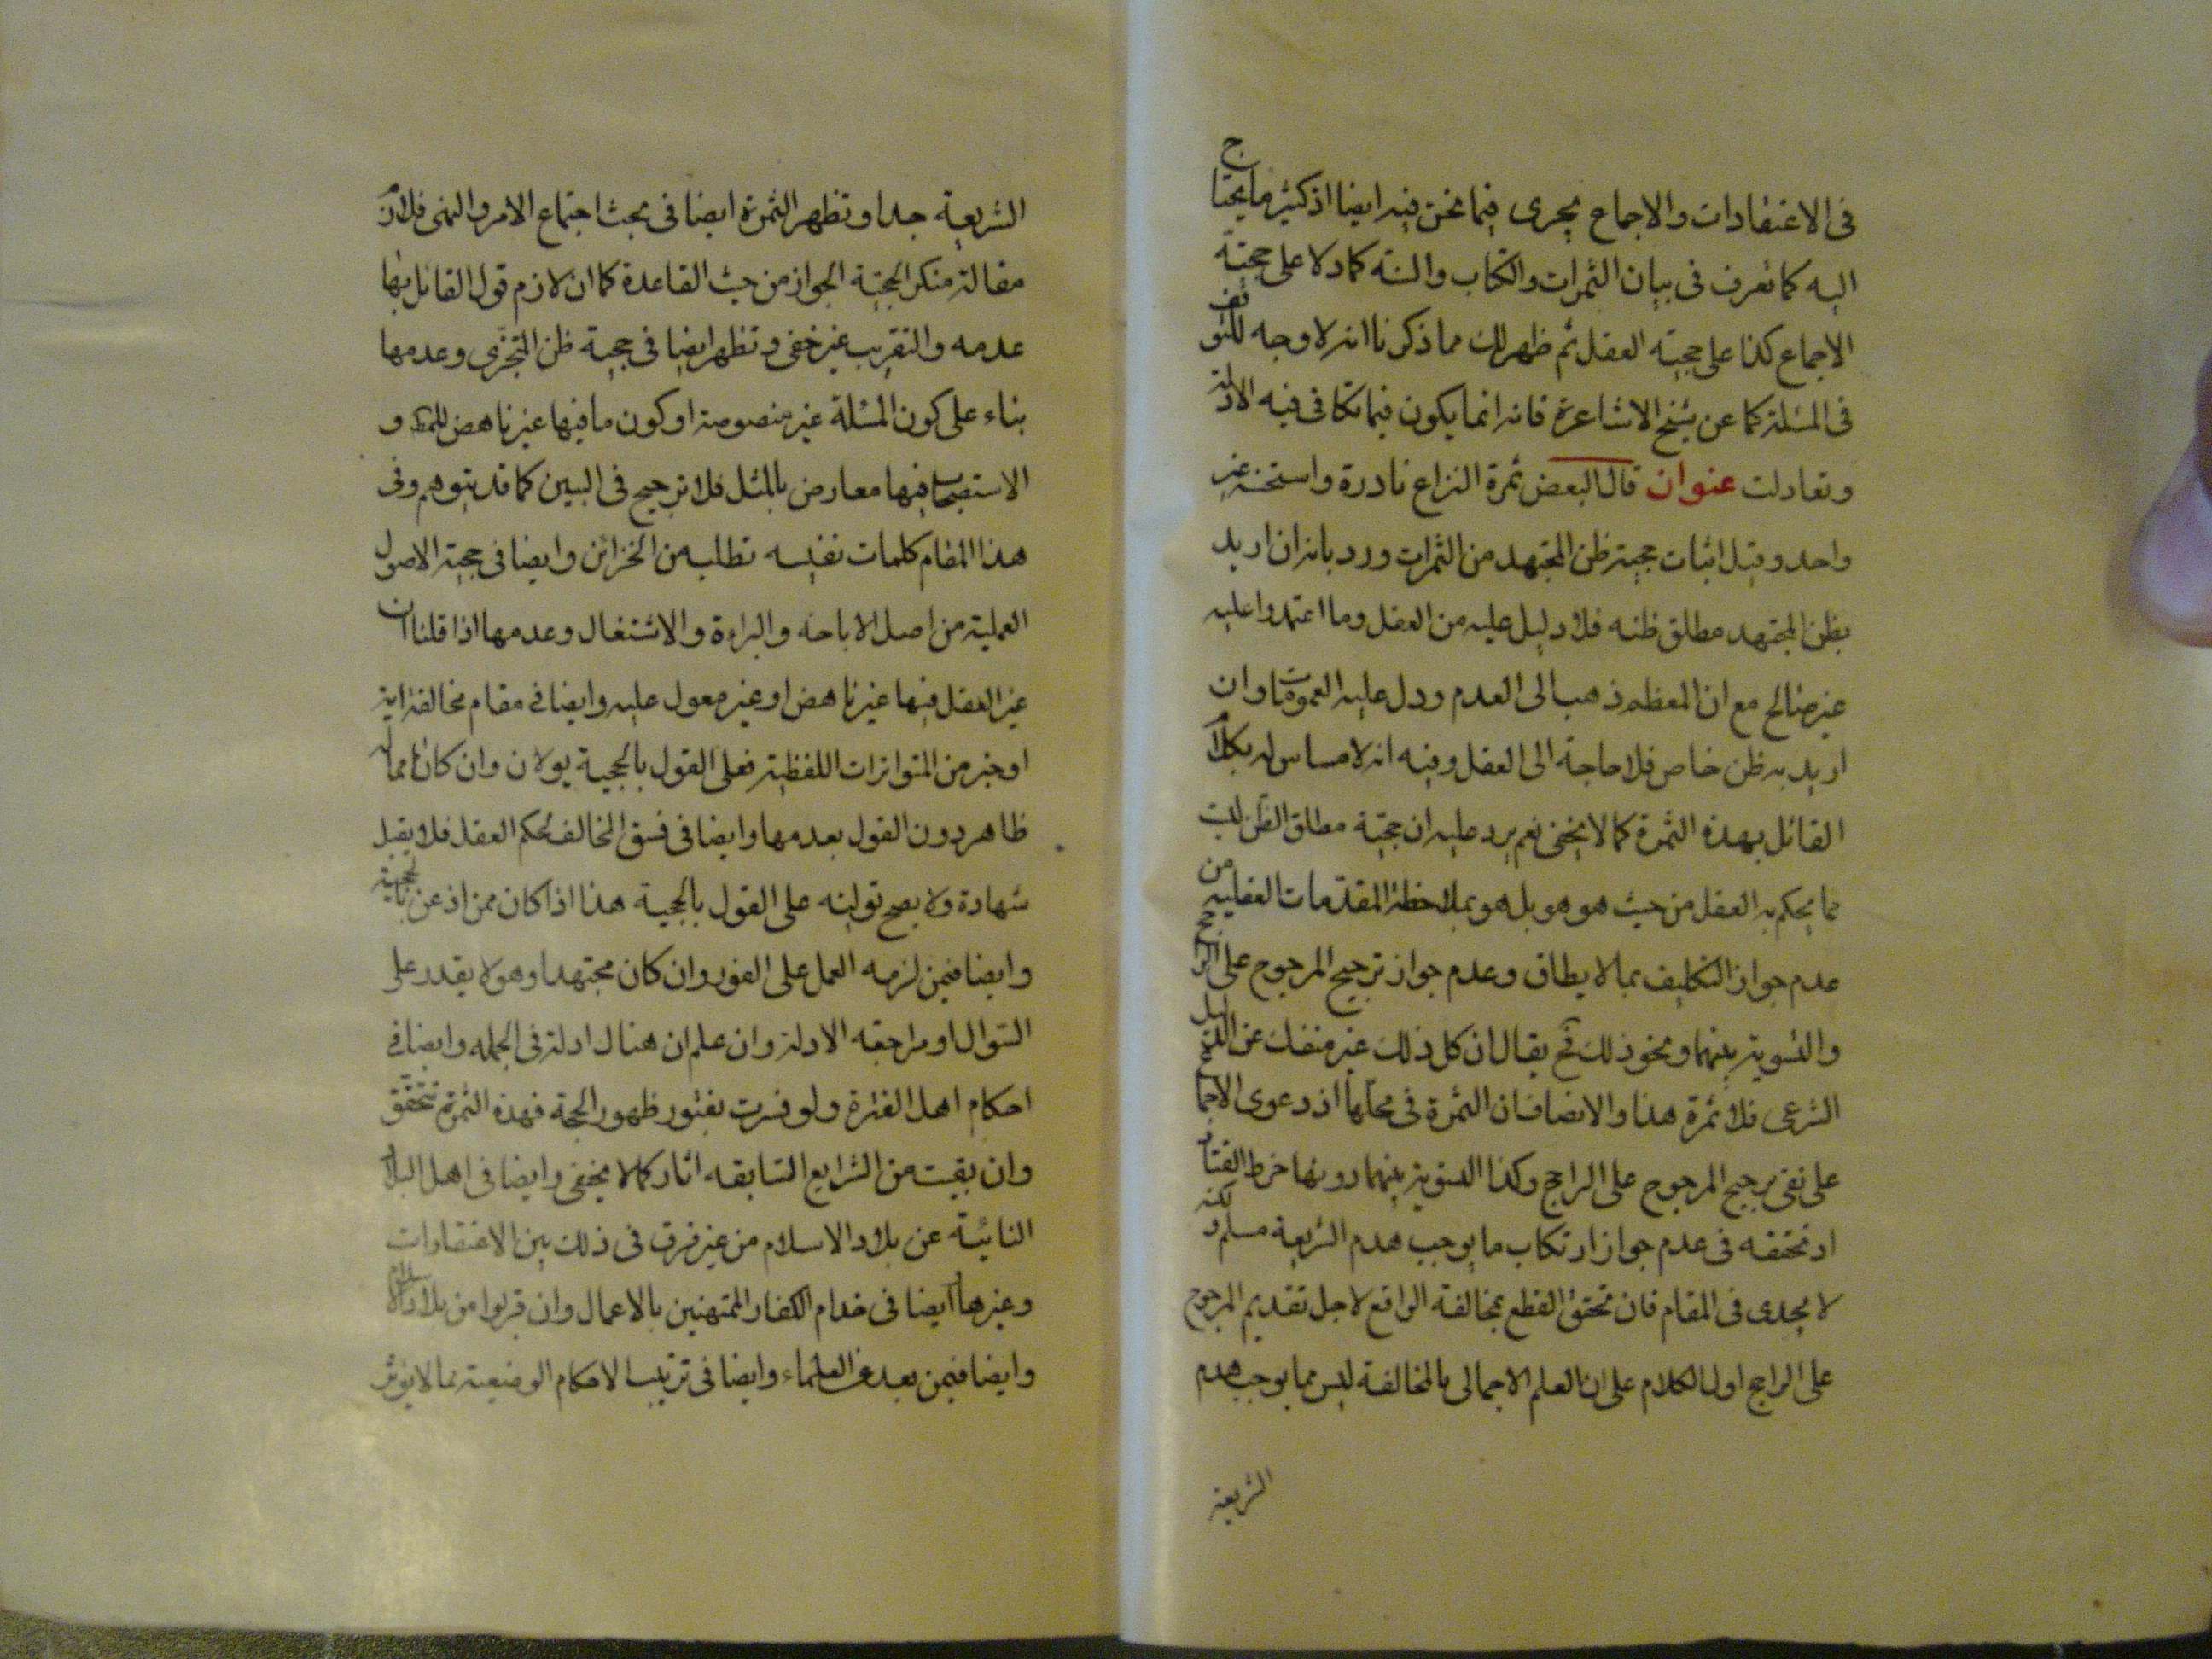 فى الاعتقادات والاجماع يجرى فيما نحن فيه ايضا اذ كثير ما يحتاج
اليه كما تعرف فى بيان الثمرات والكتاب والسنة كما دلا على حجية
الاجماع كذا على حجية العقل ثم ظهر لك مما ذكرنا انه لا وجه للتوقف
فى المسئلة كما عن شيخ الاشاعرة فانه انما يكون فيما تكافى فيه الادلة
وتعادلت عنوان قال البعض ثمرة النزاع نادرة واستحسنه غير
واحد وقيل اثبات حجية ظن المجتهد من الثمرات ورد بانه ان اريد
بظن المجتهد مطلق ظنه فلا دليل عليه من العقل وما اعتمدوا عليه
غير صالح مع ان المعظم ذهب الى العدم ودل عليه العمومات وان
اريد به ظن خاص فلا حاجة الى العقل وفيه انه لا مساس له بكلام
القائل بهذه الثمرة كما لا يخفى نعم يرد عليه ان حجية مطلق الظن ليست
مما يحكم به العقل من حيث هو هو بل هو بملاحظة المقدمات العقلية من
عدم جواز التكليف بما لا يطاق وعدم جواز ترجيح المرجوح على الراجح
والتسوية بينهما ونحو ذلك فح يقال ان كل ذلك غير منفك عن الدليل
الشرعى فلا ثمرة هذا والانصاف ان الثمرة فى محلها اذ دعوى الاجماع
على نفى ترجيح المرجوح على الراجح وكذا التسوية بينهما دونها خرط القتاد
اذ تحققه فى عدم جواز ارتكاب ما يوجب هدم الشريعة مسلم ولكنه
لا يجدى فى المقام فان تحقق القطع بمخالفة الواقع لاجل تقديم المرجوح
على الراجح اول الكلام على ان العلم الاجمالى بالمخالفة ليس مما يوجب هدم
الشريعة
الشريعة جدا وتظهر الثمرة ايضا فى مبحث اجتماع الامر والنهى فلازم
مقالة منكر الحجية الجواز من حيث القاعدة كما ان لازم قول القائل بها
عدمه والتقريب غير خفى وتظهر ايضا فى حجية ظن المتجزى وعدمها
بناء على كون المسئلة غير منصوصة او كون ما فيها غير ناهض للمط و
الاستصحاب فيها معارض بالمثل فلا ترجيح فى البين كما قد يتوهم وفى
هذا المقام كلمات نفيسه تطلب من الخزائن وايضا فى حجية الاصول
العملية من اصل الاباحة والبراءة والاشتغال وعدمها اذا قلنا ان
غير العقل فيها غير ناهض او غير معول عليه وايضا فى مقام مخالفة اية
او خبر من المتواترات اللفظية فعلى القول بالحجية يولان وان كانا مما له
ظاهر دون القول بعدمها وايضا فى فسق المخالف لحكم العقل فلا يقبل
شهادة ولا يصح توليته على القول بالحجية هذا اذا كان ممن اذعن بالحجية
وايضا فيمن لزمه العمل على الفور وان كان مجتهدا وهو لا يقدر على
السؤال او مراجعة الادلة وان علم ان هناك ادلة فى الجمله وايضا فى
احكام اهل الفترة ولو فسرت بفتور ظهور الحجة فهذه الثمرة تتحقق
وان بقيت من الشرايع السابقه اثار كما لا يخفى وايضا فى اهل البلاد
النائية عن بلاد الاسلام من غير فرق فى ذلك بين الاعتقادات
وغيرها وايضا فى خدام الكفار الممتهنين بالاعمال وان قربوا من بلاد الاسلام
وايضا فيمن بعد عن العلماء وايضا فى ترتيب الاحكام الوضعية بما لا يؤثر